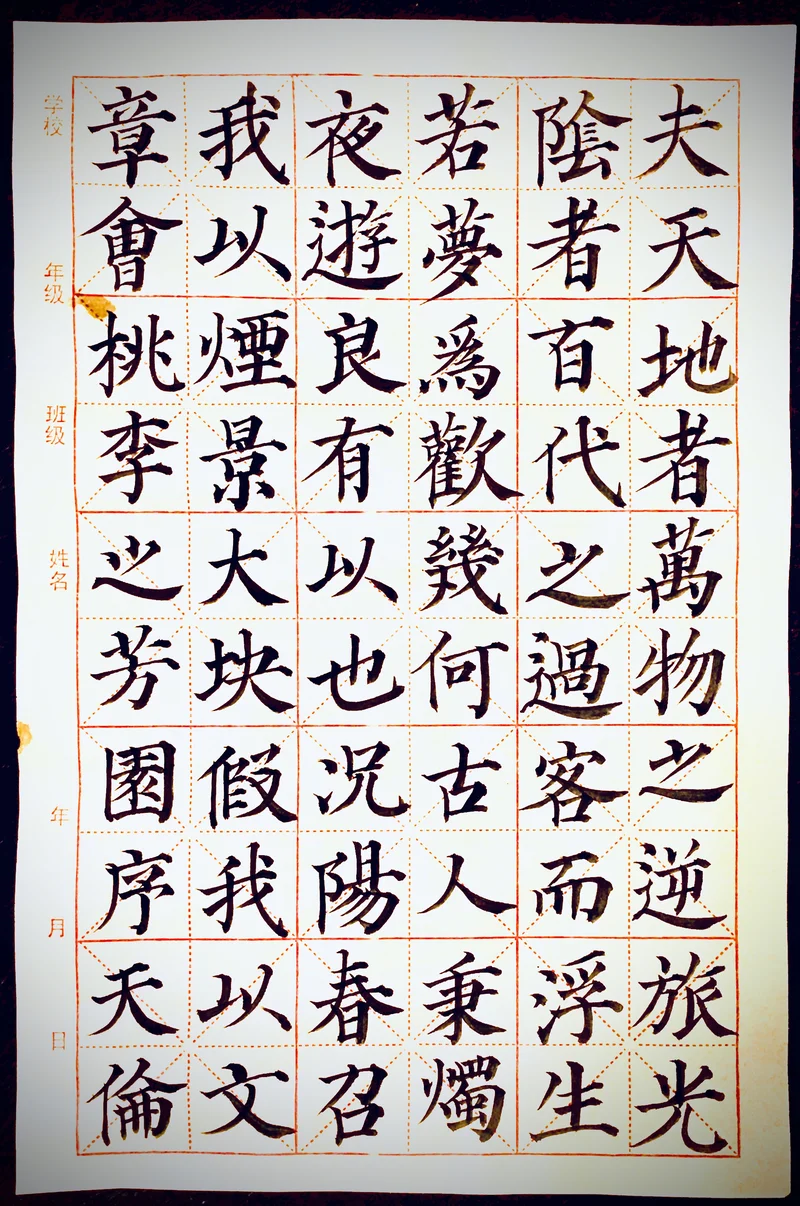 夫天地者萬物之逆旅光
陰者百代之過客而浮生
若夢爲歡幾何古人秉燭
夜遊良有以也况陽春召
我以煙景大块假我以文
章會桃李之芳園序天倫
学校
年级
班级
姓名
年
月
日